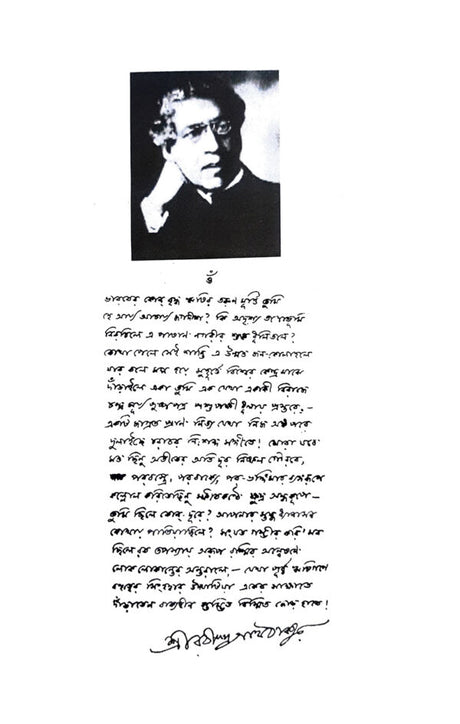 ওঁ
ভারতের কোন্ বৃদ্ধ ঋষির তরুণ মূর্ত্তি তুমি
হে আর্য্য আচার্য্য জগদীশ? কি অদৃশ্য তপোভূমি
বিরচিলে এ পাষাণ নগরীর শুষ্ক ধূলিতলে?
কোথা পেলে সেই শান্তি এ উন্মত্ত জন-কোলাহলে
যার তলে মগ্ন হয়ে মুহূর্ত্তে বিশ্বের কেন্দ্র মাঝে
দাঁড়াইলে একা তুমি এক যেথা একাকী বিরাজে
চন্দ্র সূর্য্য পুষ্পপত্র পশুপক্ষী ধূলায় প্রস্তরে,—
একটি জাগ্রত প্রাণ নিত্য যেথা নিজ অঙ্ক পরে
দুলাইছে চরাচর নিঃশব্দ সঙ্গীতে! মোরা যবে
মত্ত ছিনু অতীতের অতি দূর নিষ্ফল গৌরবে,
পরবস্ত্রে, পরবাক্যে, পর-ভঙ্গিমার ব্যঙ্গরূপে
কল্লোল করিতেছিনু স্ফীতকণ্ঠে ক্ষুদ্র অন্ধকূপে—
তুমি ছিলে কোন্ দূরে? আপনার স্তব্ধ ধ্যানাসন
কোথায় পাতিয়াছিলে? সংযত গম্ভীর করি মন
ছিলে রত তপস্যায় অরূপ রশ্মির অন্বেষণে
লোক লোকান্তের অন্তরালে,— যেথা পূর্ব্ব ঋষিগণে
বহুত্বের সিংহদ্বার উদ্ঘাটিয়া একের সাক্ষাতে
দাঁড়াতেন বাক্যহীন স্তম্ভিত বিস্মিত জোড় হাতে!
শ্রীরবীন্দ্রনাথ ঠাকুর